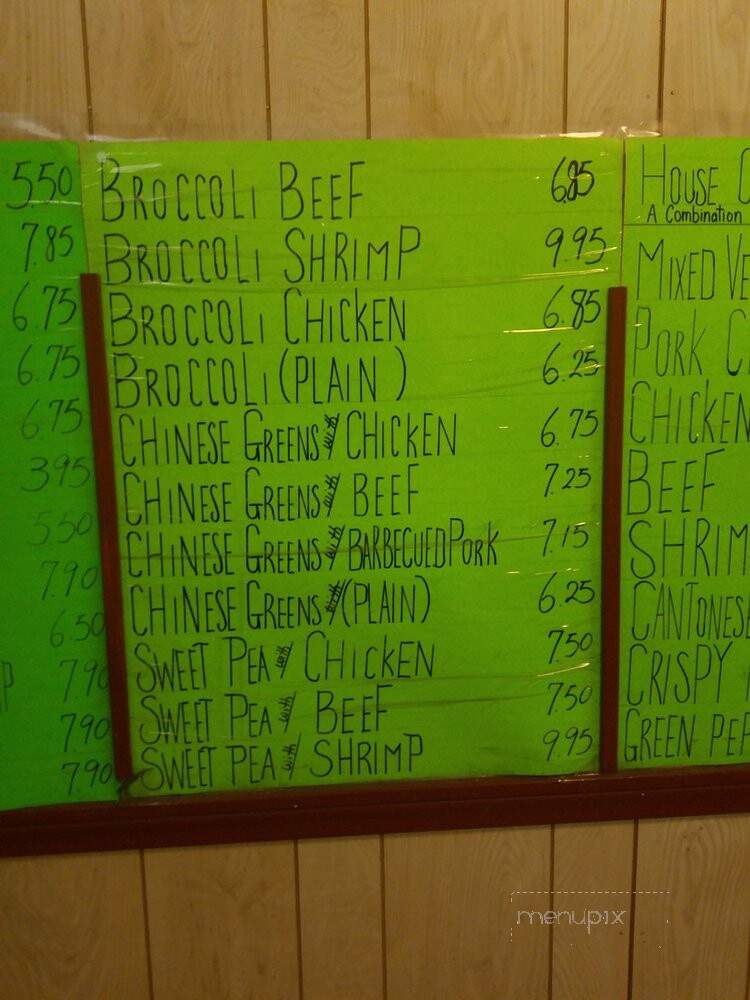 5.50
7.85
6.75
6.75
6.75
3.95
5.50
7.90
6.50
7.90
7.90
7.90
BROCCOLI BEEF 6.85
BROCCOLI SHRIMP 9.95
BROCCOLI CHICKEN 6.85
BROCCOLI (PLAIN) 6.25
CHINESE GREENS with CHICKEN 6.75
CHINESE GREENS with BEEF 7.25
CHINESE GREENS with BARBECUED PORK 7.15
CHINESE GREENS with (PLAIN) 6.25
SWEET PEA with CHICKEN 7.50
SWEET PEA with BEEF 7.50
SWEET PEA with SHRIMP 9.95
HOUSE
A Combination
MIXED VE
PORK C
CHICKEN
BEEF
SHRIM
CANTONESE
CRISPY
GREEN PEP
menupix